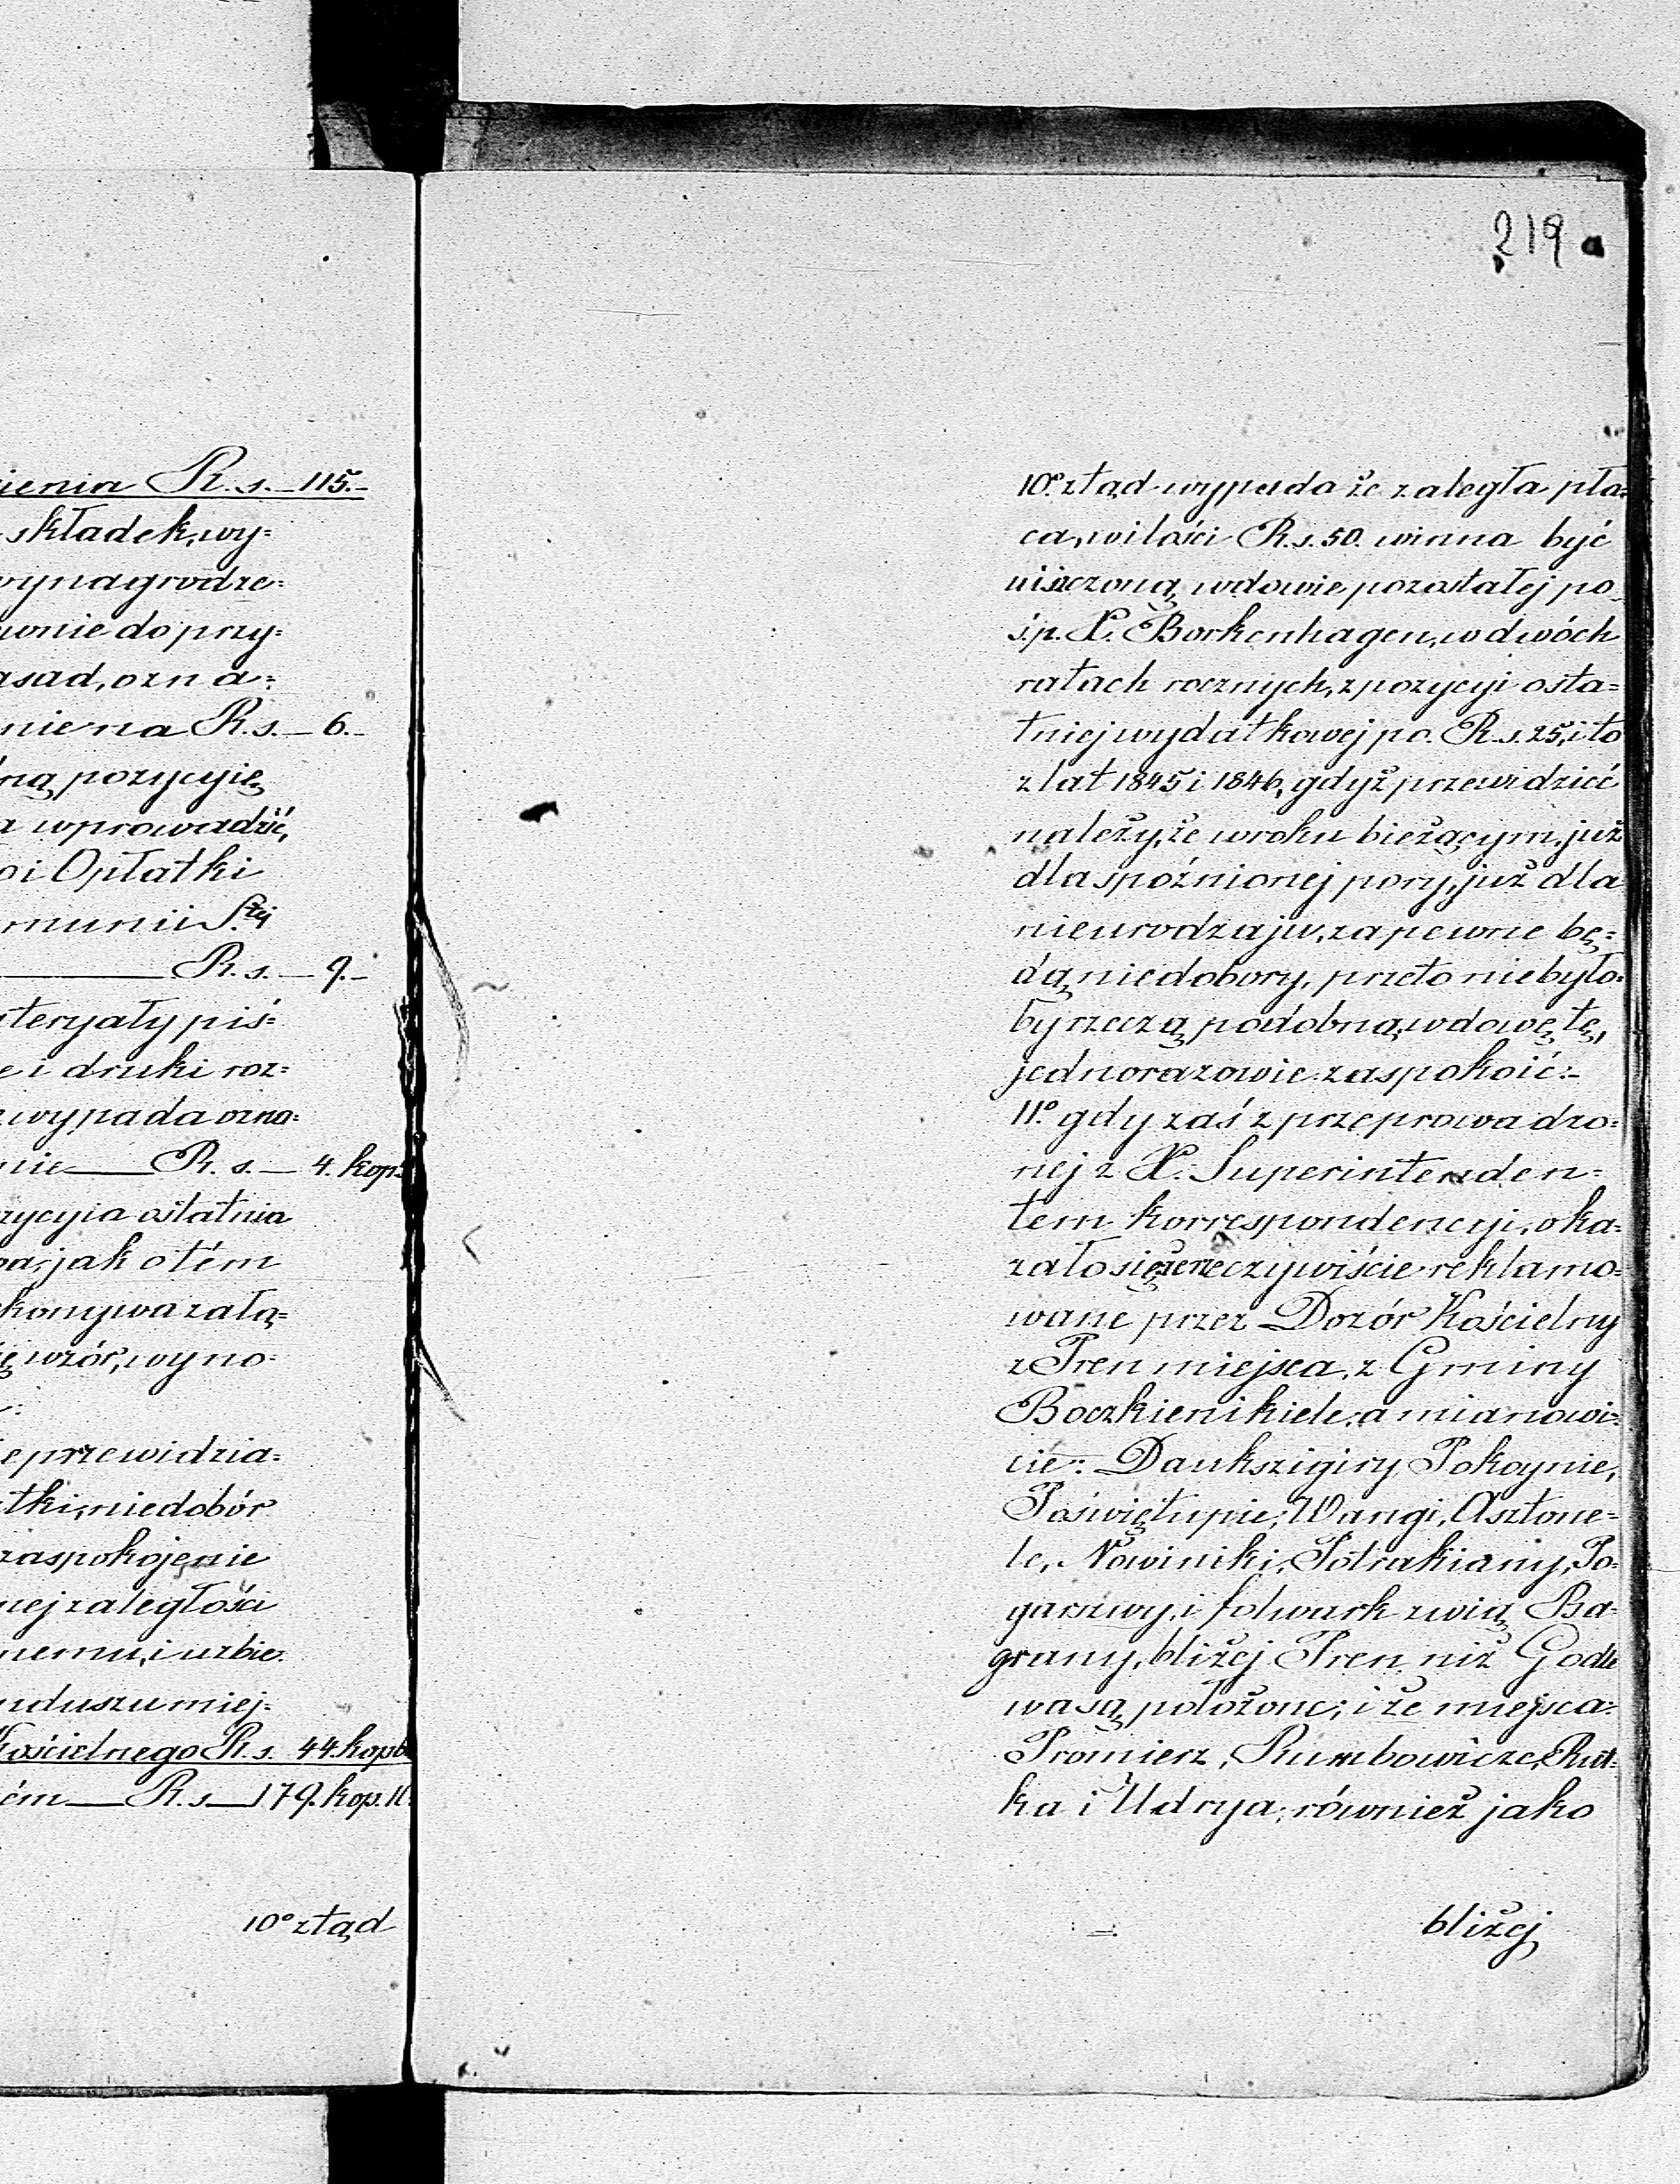 ienia R. s. – 115. –
składek, wy=
wynagrodze=
wnie do przy=
asad, ozna=
nie na R. s. – 6. –
ną pozycyię
a wprowadzić,
o i Opłatki
munii S.tej
R. s. – 9. –
teryały piś=
e i druki roz=
wypada ozna=
nie — R. s. – 4. kop.
zycyia ostatnia
pa, jak o tém
konywa załą=
ę wzór, wyno=
:
e przewidzia=
tki, niedobór
zaspokojenie
nej zaległości
nemu, i uzbie=
nduszu miej=
Kościelnego R. s. 44. kop.
ém — R. s. — 179. kop. 11.
10° ztąd
219
10° ztąd wypada że zaległa pła=
ca, w ilości R. s. 50. winna być
uiszczoną wdowie pozostałej po
ś. p. X. Borkenhagen, w dwóch
ratach rocznych, z pozycyi osta=
tniej wydatkowej po R. s. 25, i to
z lat 1845 i 1846, gdyż przewidzieć
należy, że w roku bieżącym, już
dla spóźnionej pory, już dla
nieurodzaju, zapewne bę=
dą niedobory, przeto nie było=
by rzeczą podobną, wdowę tę,
jednorazowie zaspokoić:–
11° gdy zaś z przeprowadzo=
nej z X. Superintenden=
tem korrespondencyi, oka=
zało się że rzeczywiście reklamo=
wane przez Dozór Kościelny
z Pren miejsca, z Gminy
Boczkienikiele, a mianowi=
cie: Daukszigiry, Pokoynie,
Poświętupie, Wangi, Asztone=
le, Nowiniki, Potrakiany, Po=
garszwy, i folwark zwią Ba=
grany, bliżej Pren niż Godle
wa są położone; i że miejsca:
Promierz, Rumbowicze, Rut=
ka i Udrya, również jako
bliżej